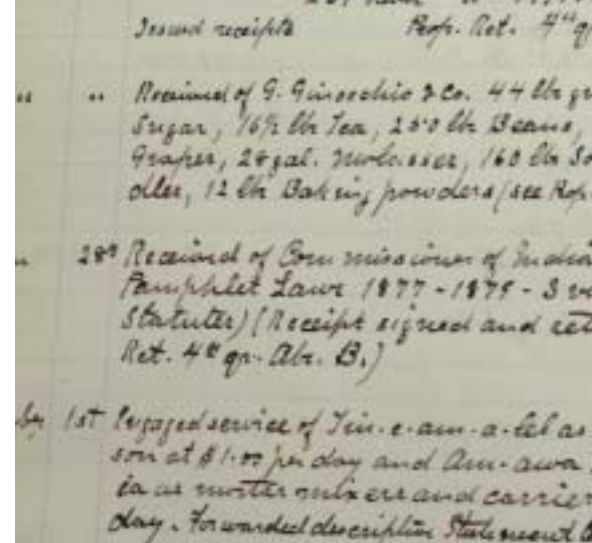 Issued receipts Prop. Ret. 4th q
" " Received of G. Ginocchio & Co. 44 lbs gr
Sugar, 16½ lbs Tea, 250 lbs Beans,
Grapes, 28 gal. Molasses, 160 lbs So
dles, 12 lbs Baking powders (see Rop.
" 28th Received of Commissioner of India
Pamphlet Laws 1877-1879 - 3 vo
Statutes) (Receipt signed and ret
Ret. 4th qr. Abs. B.)
ber 1st Engaged service of as
son at $1.00 per day and Am-awa
ia as morter mixers and carrier
day. Forwarded descriptive Statement